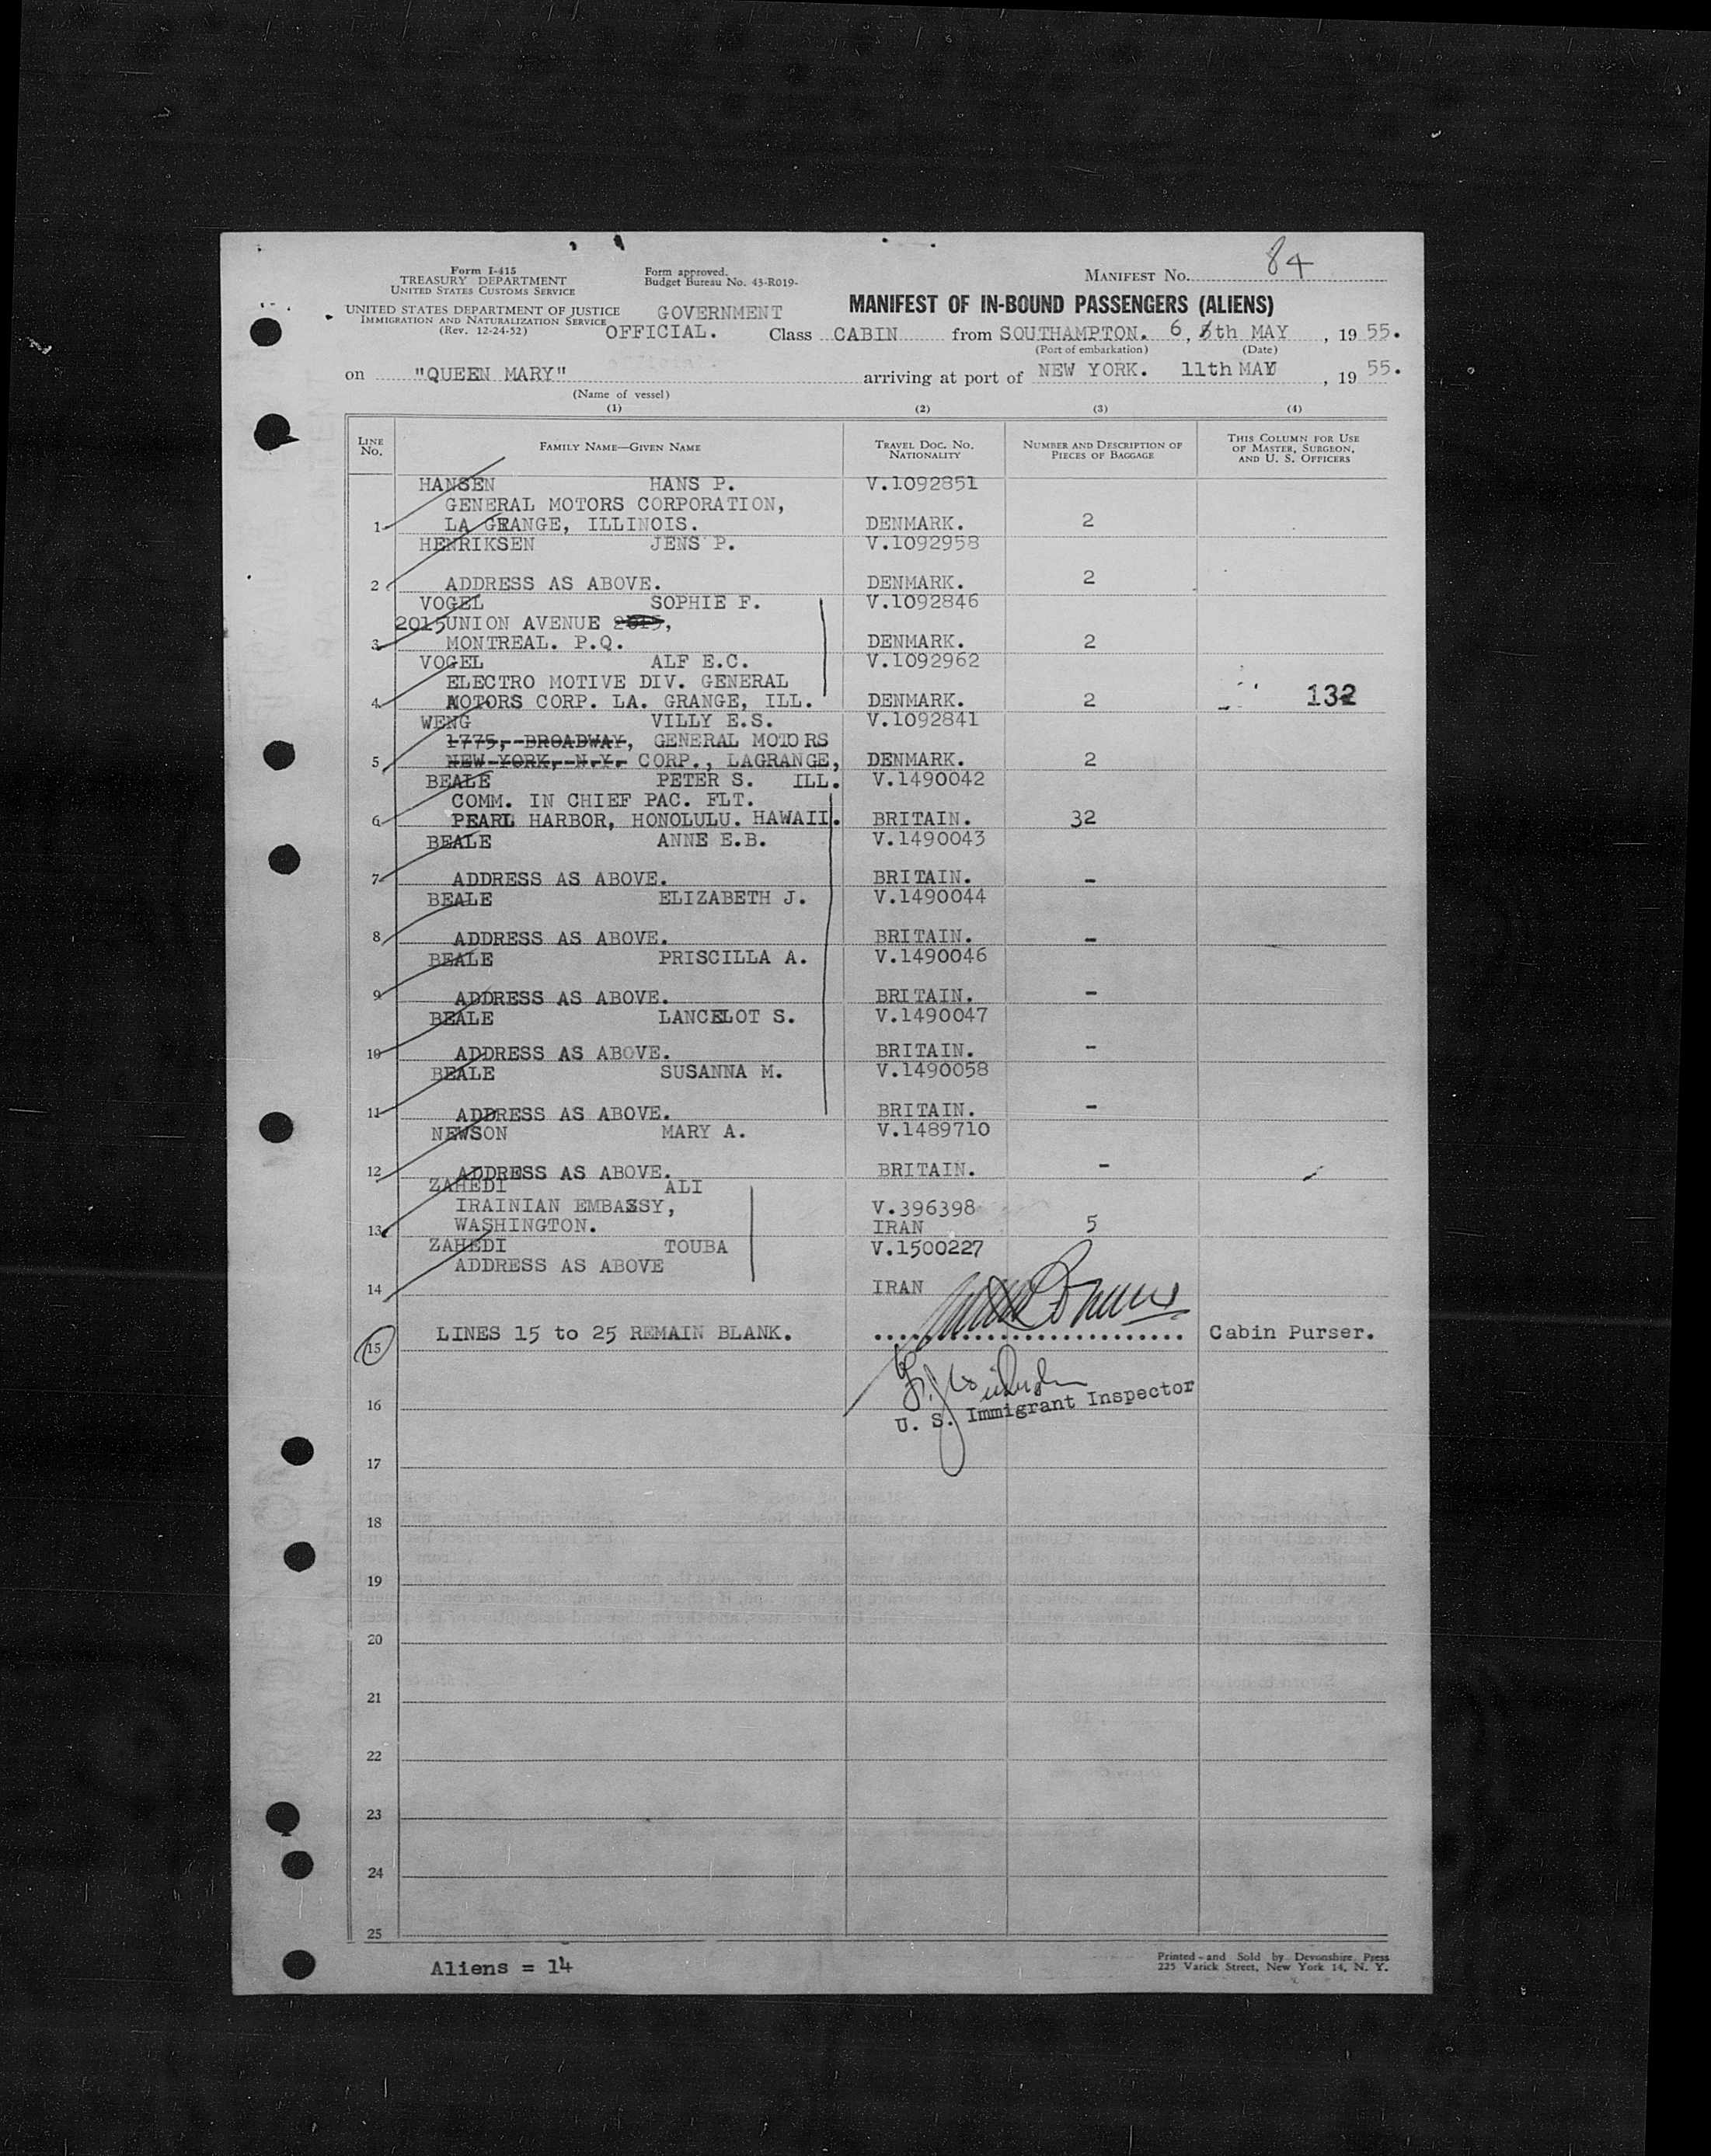 Form I-415
TREASURY DEPARTMENT
UNITED STATES CUSTOMS SERVICE
UNITED STATES DEPARTMENT OF JUSTICE
IMMIGRATION AND NATURALIZATION SERVICE
(Rev. 12-24-52)
Form approved.
Budget Bureau No. 43-R019-
GOVERNMENT
OFFICIAL.
MANIFEST No. 84
MANIFEST OF IN-BOUND PASSENGERS (ALIENS)
Class CABIN from SOUTHAMPTON. 6, th MAY, 19 55.
(Port of embarkation) (Date)
on "QUEEN MARY" arriving at port of NEW YORK. 11th MAY, 19 55.
(Name of vessel)
(1) (2) (3) (4)
LINE No. FAMILY NAME—GIVEN NAME TRAVEL DOC. NO. NATIONALITY NUMBER AND DESCRIPTION OF PIECES OF BAGGAGE THIS COLUMN FOR USE OF MASTER, SURGEON, AND U. S. OFFICERS
HANSEN HANS P. V.1092851
GENERAL MOTORS CORPORATION,
1 LA GRANGE, ILLINOIS. DENMARK. 2
HENRIKSEN JENS P. V.1092958
2 ADDRESS AS ABOVE. DENMARK. 2
VOGEL SOPHIE F. V.1092846
2015UNION AVENUE 2015,
3 MONTREAL. P.Q. DENMARK. 2
VOGEL ALF E.C. V.1092962
ELECTRO MOTIVE DIV. GENERAL
4 MOTORS CORP. LA. GRANGE, ILL. DENMARK. 2 132
WENG VILLY E.S. V.1092841
1775, BROADWAY, GENERAL MOTORS
5 NEW YORK, N.Y. CORP., LAGRANGE, DENMARK. 2
BEALE PETER S. ILL. V.1490042
COMM. IN CHIEF PAC. FLT.
6 PEARL HARBOR, HONOLULU. HAWAII. BRITAIN. 32
BEALE ANNE E.B. V.1490043
7 ADDRESS AS ABOVE. BRITAIN. -
BEALE ELIZABETH J. V.1490044
8 ADDRESS AS ABOVE. BRITAIN. -
BEALE PRISCILLA A. V.1490046
9 ADDRESS AS ABOVE. BRITAIN. -
BEALE LANCELOT S. V.1490047
10 ADDRESS AS ABOVE. BRITAIN. -
BEALE SUSANNA M. V.1490058
11 ADDRESS AS ABOVE. BRITAIN. -
NEWSON MARY A. V.1489710
12 ADDRESS AS ABOVE. BRITAIN. -
ZAHEDI ALI
IRAINIAN EMBASSY, V.396398
13 WASHINGTON. IRAN 5
ZAHEDI TOUBA V.1500227
ADDRESS AS ABOVE
14 IRAN
15 LINES 15 to 25 REMAIN BLANK. Cabin Purser.
16 U. S. Immigrant Inspector
17
18
19
20
21
22
23
24
25
Aliens = 14
Printed and Sold by Devonshire Press
225 Varick Street, New York 14, N. Y.